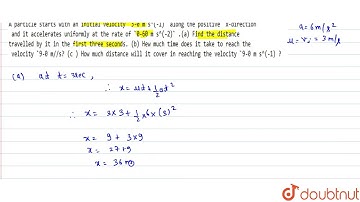 A particle starts with an initial velocity `3-0 m s^(-1)` along the positive `x-direction
and it accelerates uniformly at the rate of `0-60 m s^(-2)` .(a) Find the distance
travelled by it in the first three seconds. (b) How much time does it take to reach the
velocity `9-0 m//s? (c ) How much distance will it cover in reaching the velocity `9-0 m s^(-1) ?
a = 6 m/s²
u = v = 3 m/s
(a) at t = 3 sec,
∴ x = ut + ½ at²
∴ x = 3×3 + ½ ×6×(3)²
x = 9 + 3×9
x = 27+9
x = 36 m
doubtnut